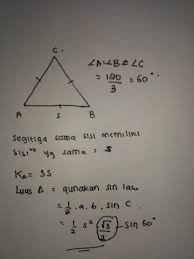 C.
∠A=∠B=∠C
= 180/3 = 60°
A s B
Segitiga sama sisi memiliki
sisi² yg sama = s
K_Δ = 3s
Luas Δ = gunakan sin law
= 1/2 . a . b . sin C
= 1/2 s² √3/2 → sin 60°